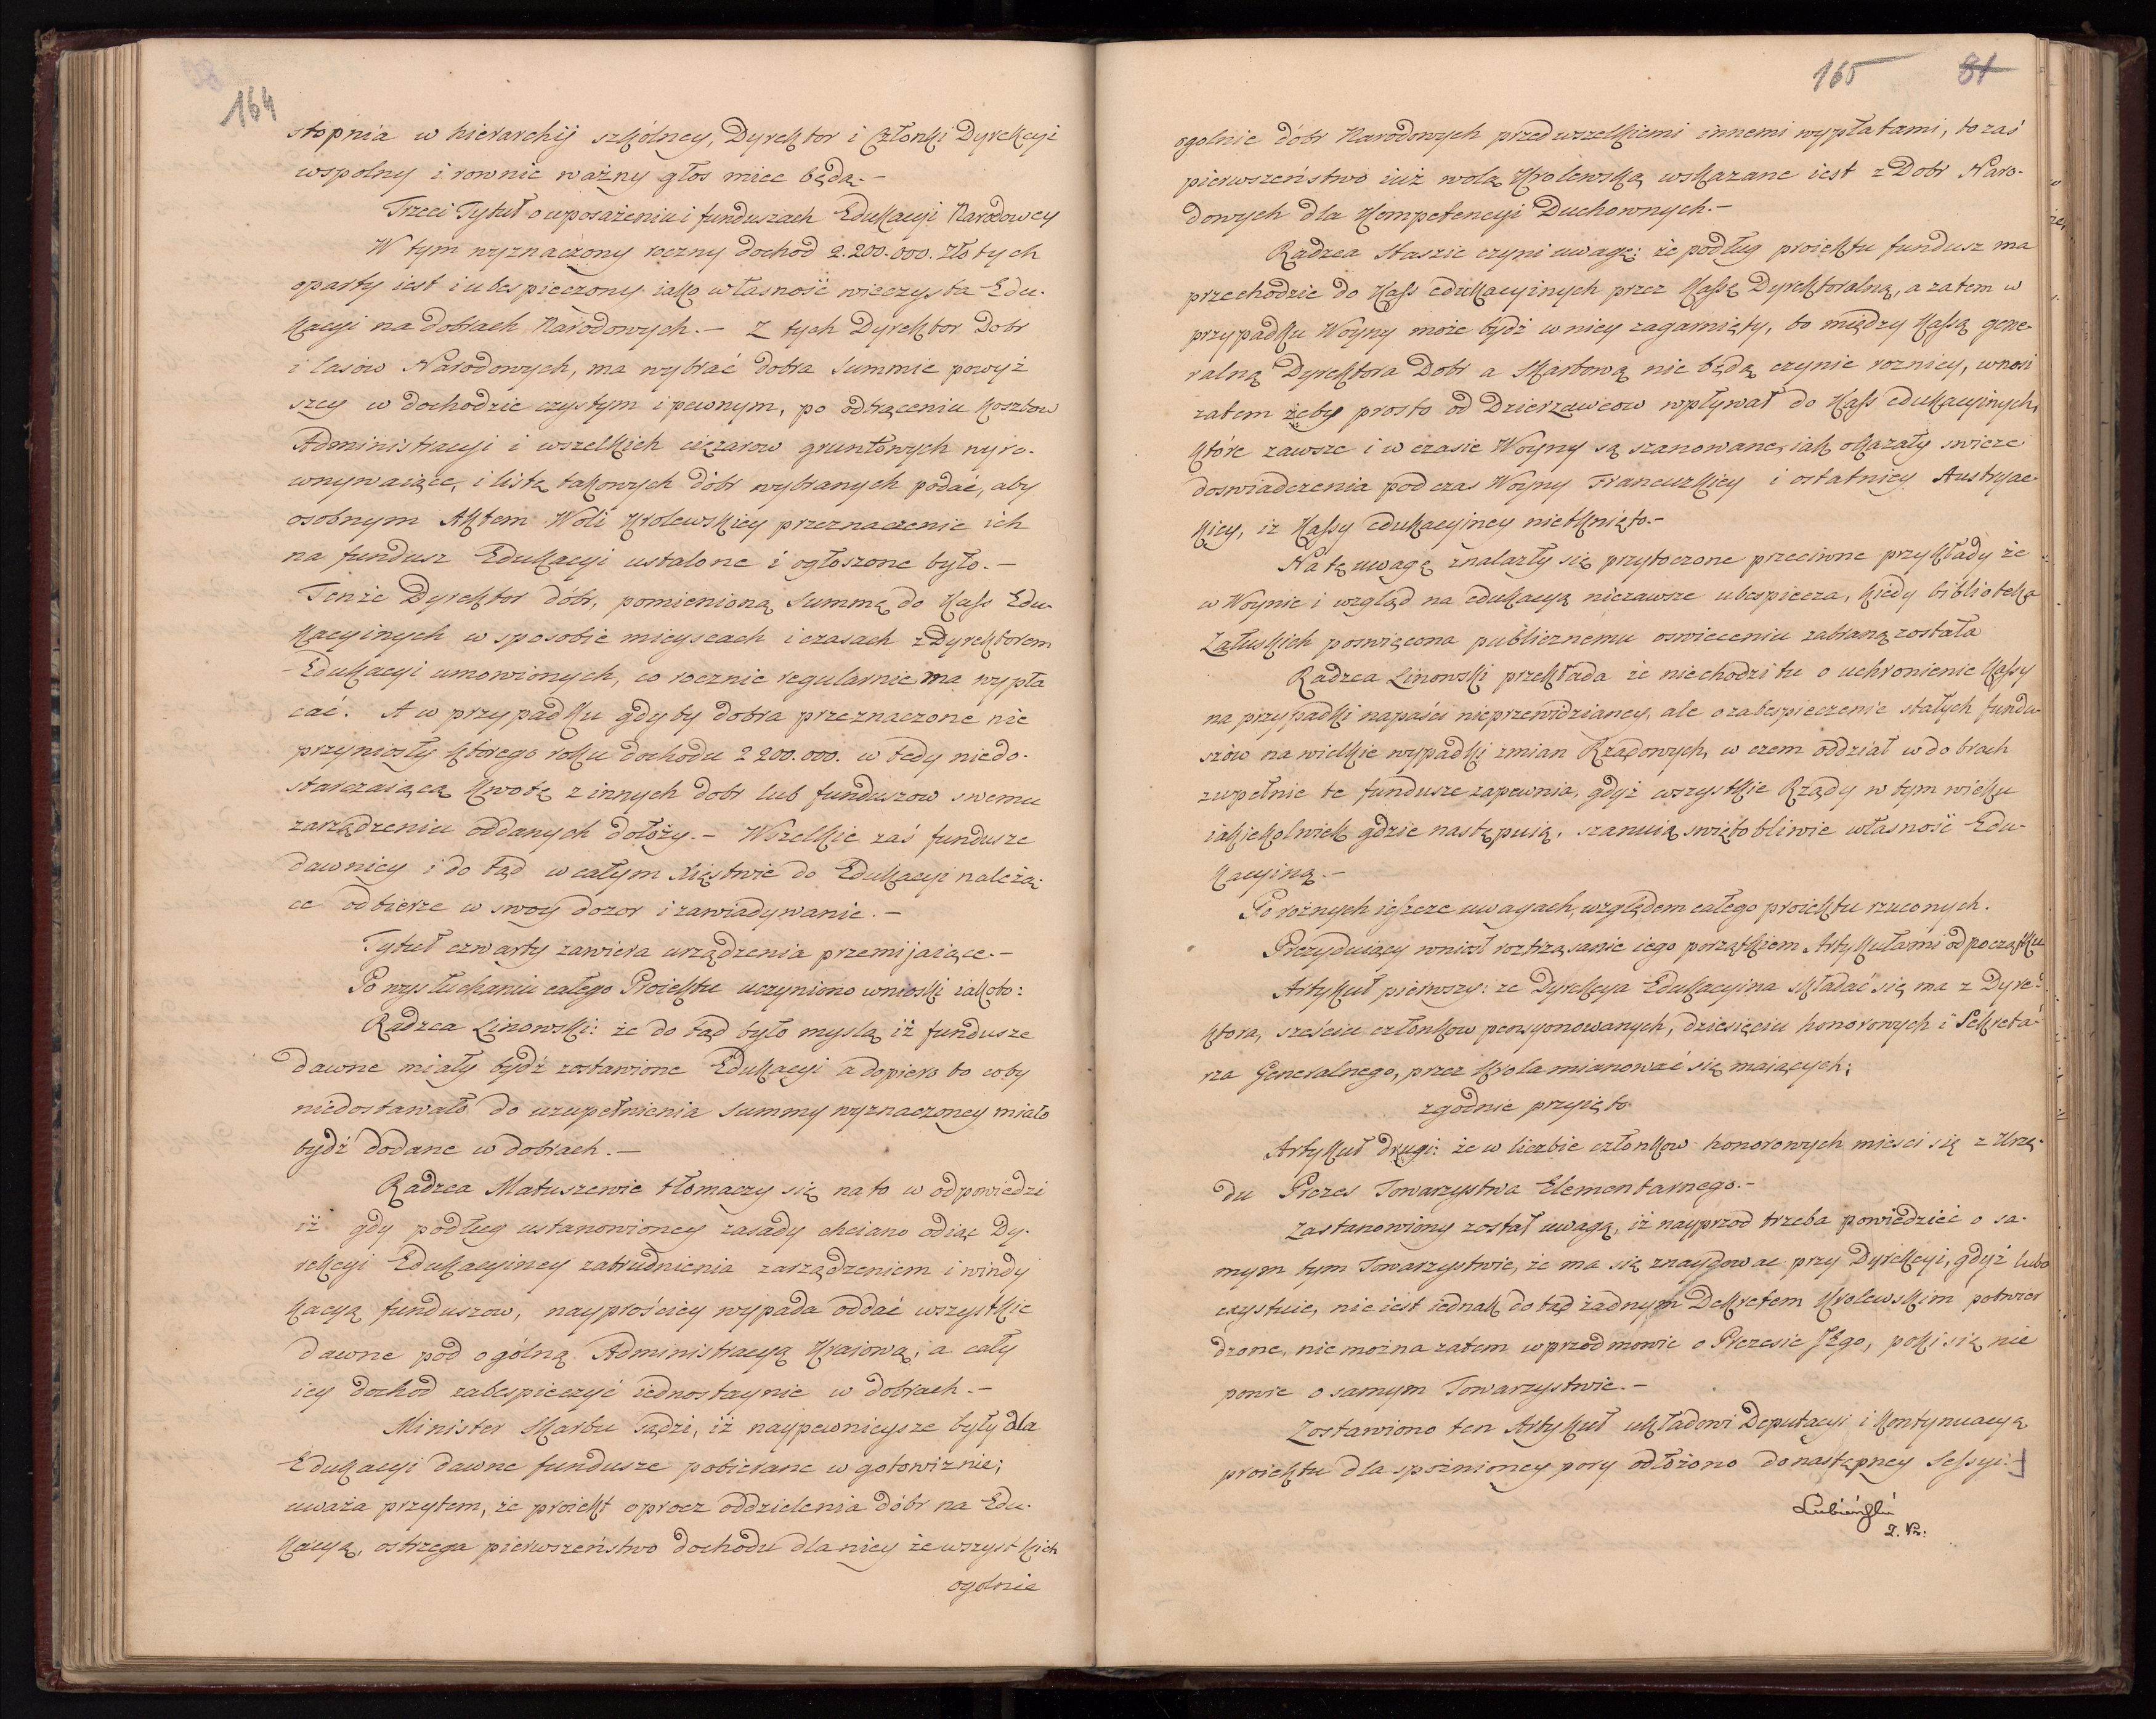 164
stopnia w hierarchij szkólney, Dyrektor i Członki Dyrekcyi
wspolny i rownie ważny głos miec będą.-
Trzeci Tytuł o uposażeniu i funduszach Edukacyi Narodowey
W tym wyznaczony roczny dochod 2.200.000. złotych
oparty iest i ubespieczony iako własność wieczysta Edu-
kacyi na dobrach Narodowych.- Z tych Dyrektor Dobr
i lasów Narodowych, ma wybrać dobra summie powyż
szey w dochodzie czystym i pewnym, po odtrąceniu kosztow
Administracyi i wszelkich ciężarow gruntowych wyro-
wnywaiące, i listę takowych dóbr wybranych podać, aby
osobnym Aktem Woli Krolewskiey przeznaczenie ich
na fundusz Edukacyi ustalone i ogłoszone było.-
Tenże Dyrektor dóbr, pomienioną summę do Kass Edu-
kacyinych w sposobie mieyscach i czasach z Dyrektorem
Edukacyi umowionych, co rocznie regularnie ma wypła
cac. A w przypadku gdyby dobra przeznaczone nie
przyniosły którego roku dochodu 2 200.000. w tedy niedo-
starczaiącą kwotę z innych dobr lub funduszow swemu
zarządzeniu oddanych dołoży.- Wszelkie zaś fundusze
dawniey i do tąd w całym Xięstwie do Edukacyi należą-
ce odbierze w swoy dozor i zawiadywanie.-
Tytuł czwarty zawiera urządzenia przemijaiące.-
Po wysłuchaniu całego Proiektu uczyniono wnioski iakoto:
Radzca Linowski: że do tąd było myslą iż fundusze
dawne miały bydź zostawione Edukacyi a dopiero to coby
niedostawało do uzupełnienia summy wyznaczoney miało
bydź dodane w dobrach.-
Radzca Matuszewic tłomaczy się na to w odpowiedzi
iż gdy podług ustanowioney zasady chciano odiąc Dy-
rekcyi Edukacyiney zatrudnienia zarządzeniem i windy
kacyą funduszow, nayprościey wypada oddać wszystkie
dawne pod ogólną Administracyą Kraiową; a cały
iey dochod zabespieczyć iednostaynie w dobrach.-
Minister Skarbu sądzi, iż naypewnieysze były dla
Edukacyi dawne fundusze pobierane w gotowiznie;
uważa przytem, że proiekt oprocz oddzielenia dóbr na Edu-
kacyą, ostrzega pierwszeństwo dochodu dla niey ze wszystkich
ogolnie
165 81
ogolnie dóbr Narodowych przed wszelkiemi innemi wypłatami, to zaś
pierwszeństwo iuż wolą Krolewską wskazane iest z Dobr Naro-
dowych dla Kompetencyi Duchownych.-
Radzca Staszic czyni uwagę: że podług proiektu fundusz ma
przechodzic do Kass edukacyinych przez Kassę Dyrektoralną, a zatem w
przypadku Woyny może bydź w niey zagarnięty, bo między Kassą gene-
ralną Dyrektora Dobr a Skarbową nie będą czynic roznicy, wnosi
zatem żeby prosto od Dzierzawcow wpływał do Kass edukacyinych,
które zawsze i w czasie Woyny są szanowane, iak okazały swieże
doswiadczenia podczas Woyny Francuzkiey i ostatniey Austryac-
kiey, iz Kassy edukacyiney nietknięto.-
Na tę uwagę znalazły się przytoczone przeciwne przykłady że
w Woynie i wzgląd na edukacyą niezawsze ubespiecza, kiedy biblioteka
Załuskich poswięcona publicznemu oswieceniu zabraną została
Radzca Linowski przekłada że niechodzi tu o uchronienie Kassy
na przypadki napaści nieprzewidzianey, ale o zabespieczenie stałych fundu-
szów na wielkie wypadki zmian Rządowych, w czem oddział w dobrach
zupełnie te fundusze zapewnia, gdyż wszystkie Rządy w tym wieku
iakiekolwiek gdzie następuią, szanuią swiętobliwie własność Edu-
kacyiną.-
Po rożnych ieszcze uwagach, względem całego proiektu rzuconych.
Prezyduiący wniosł roztrząsanie iego porządkiem Artykułami od początku
Artykuł pierwszy: ze Dyrekcya Edukacyina składać się ma z Dyre-
ktora, sześciu członkow pensyonowanych, dziesięciu honorowych i Sekreta-
rza Generalnego, przez Krola mianować się maiących;
zgodnie przyięto
Artykuł drugi: że w liczbie członkow honorowych mieści się z Urzę-
du Prezes Towarzystwa Elementarnego.-
Zastanowiony został uwagą, iż nayprzod trzeba powiedzieć o sa-
mym tym Towarzystwie, że ma się znaydowac przy Dyrekcyi, gdyż lubo
exystuie, nie iest iednak do tąd żadnym Dekretem Krolewskim potwier
dzone, nie można zatem wprzod mowic o Prezesie Jego, poki się nie
powie o samym Towarzystwie.-
Zostawiono ten Artykuł układowi Deputacyi i kontynuacyą
proiektu dla spoznioney pory odłożono do następney Sessyi.-]
Lubieński